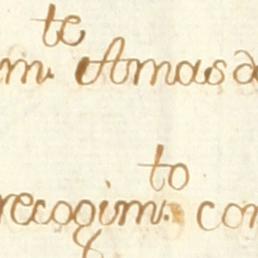 m.te Amas
recogim.to con